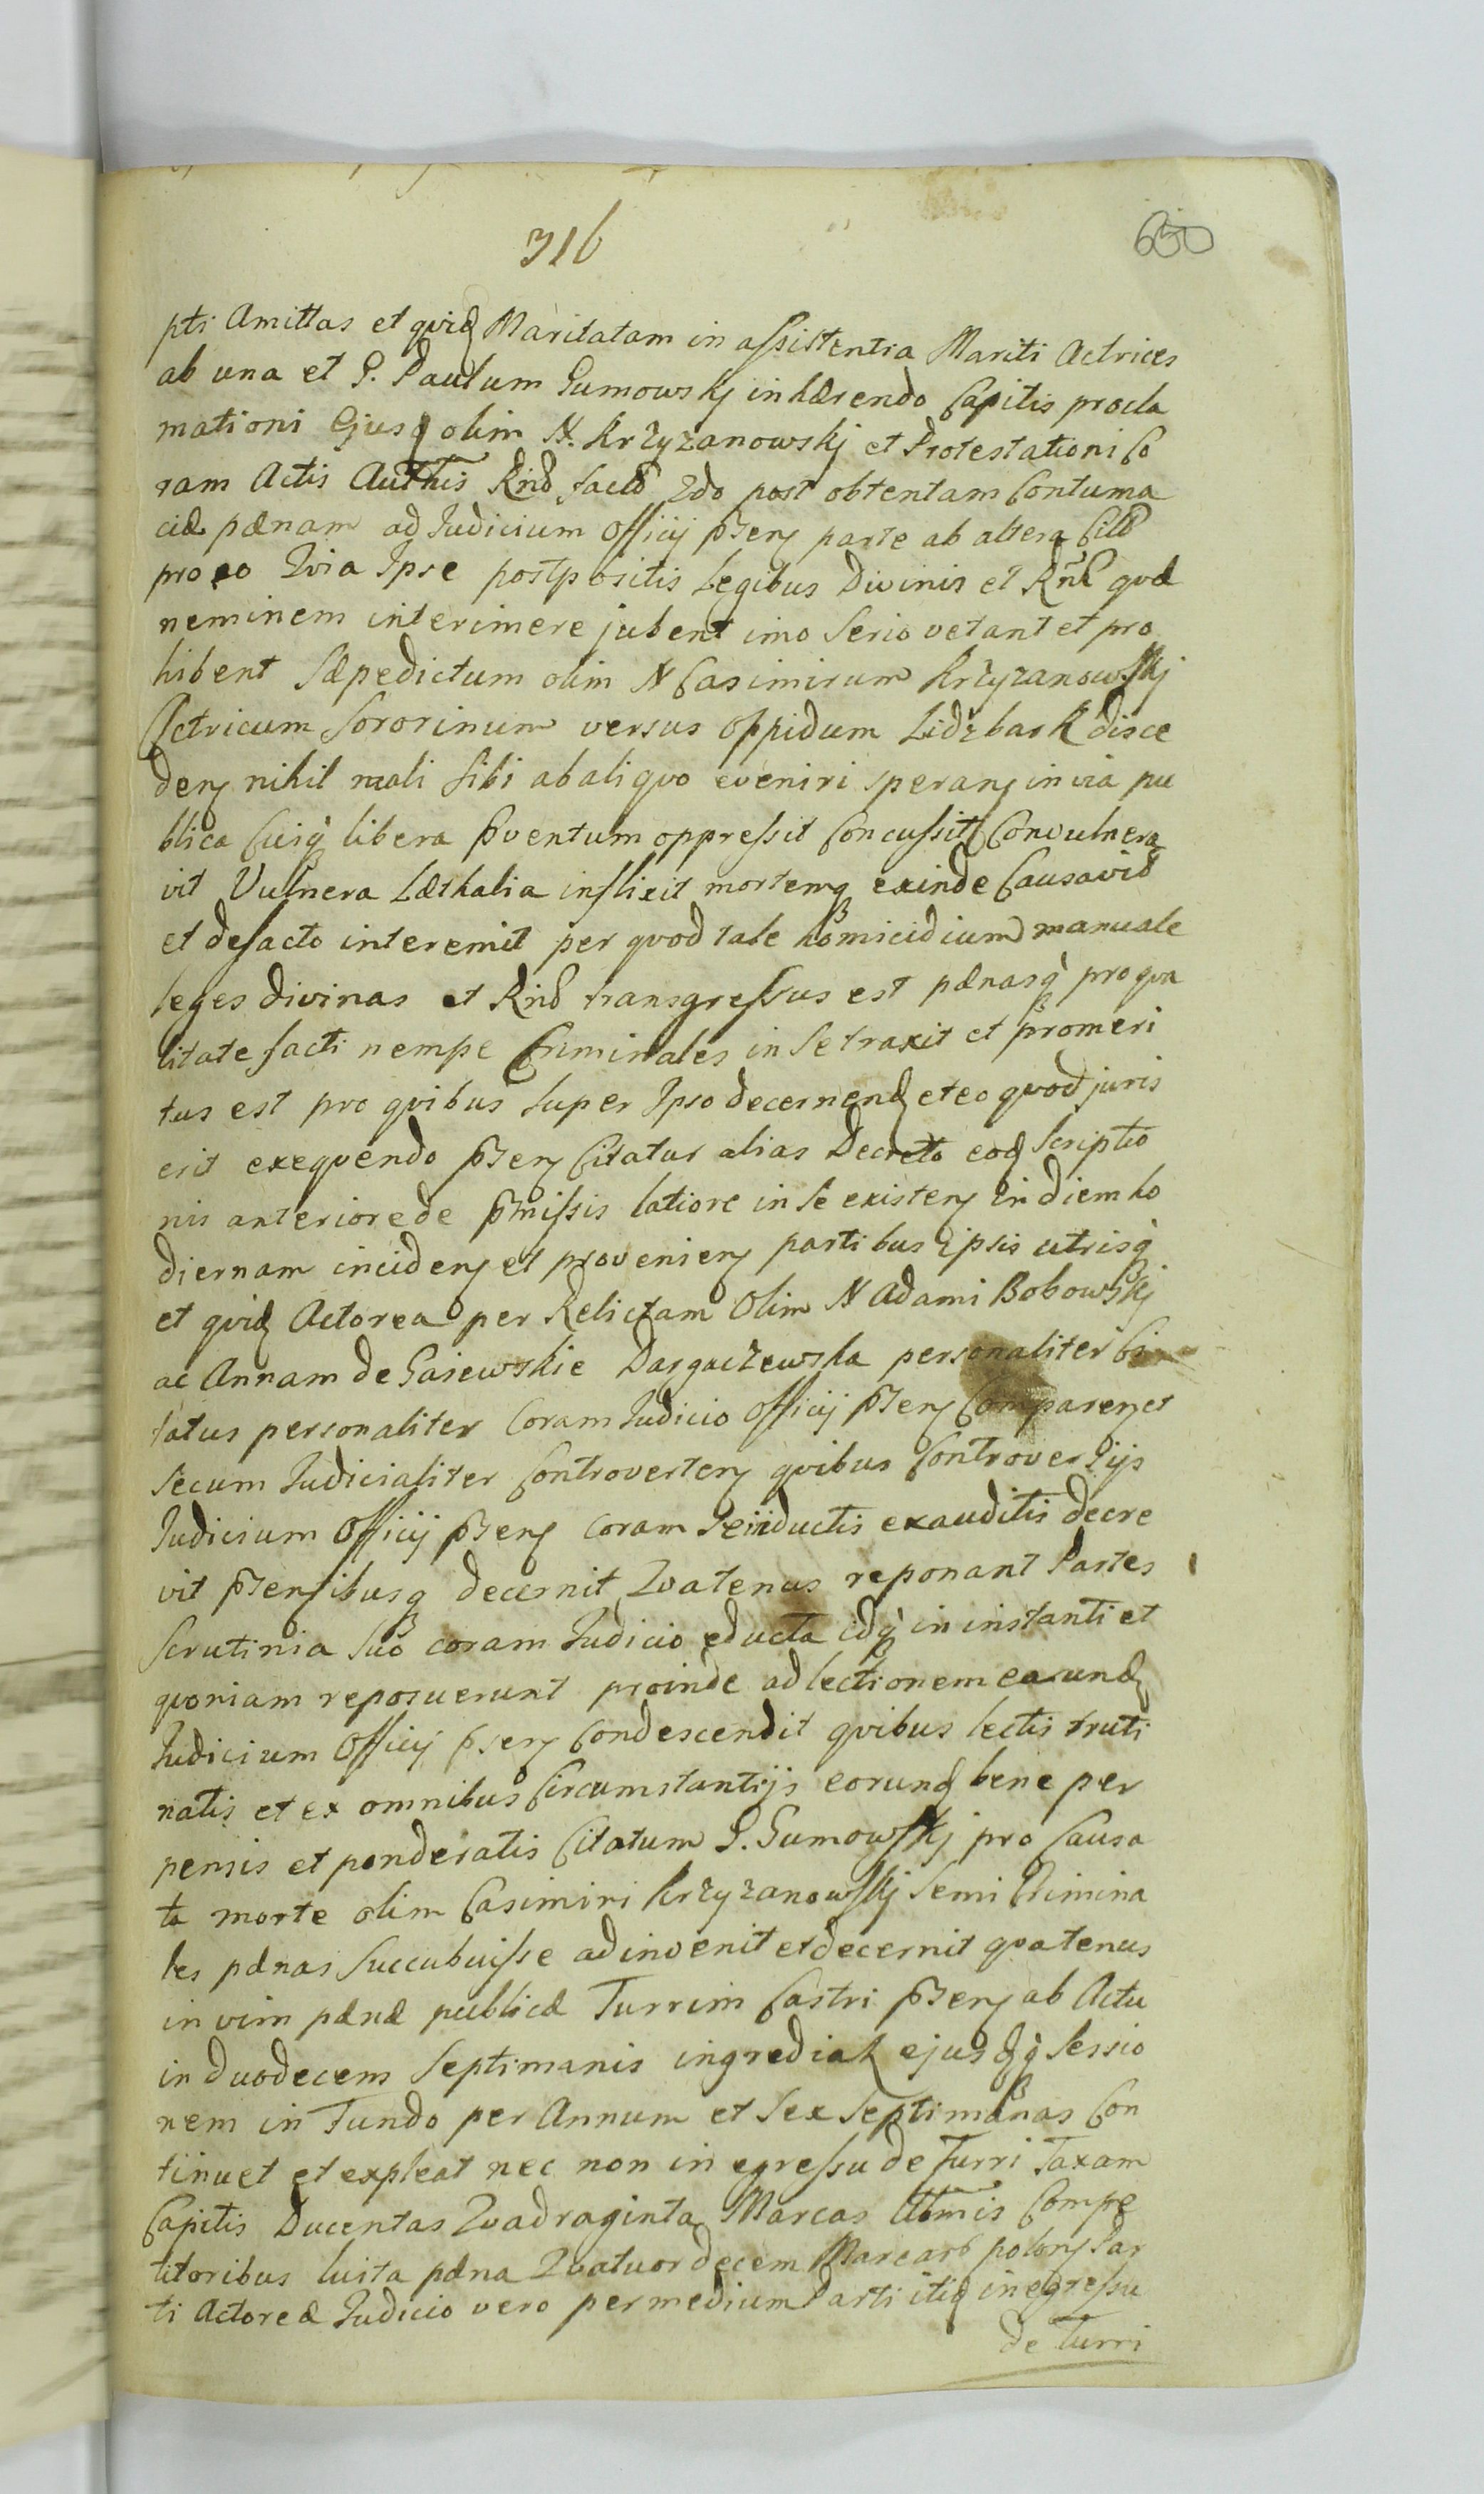 316
650
pti Amittas et qvid Maritatam in assistentia Mariti Actrices
ab una et G. Paulum Gumowskj inhærendo Capitis procla
mationi Ejusq olim N. Krzyzanowskj et Protestationi Co
ram Actis Authis Rnd factæ 2do post obtentam Contuma
ciæ pænam ad Judicium Officij pñens parte ab altera Citō
pro eo Qvia Ipse postpositis Legibus Divinis et Rñl qvæ
neminem interimere jubent imo Serio vetant et pro
hibent Sæpedictum olim N Casimirum Krzyzanowskj
Actricum Sororinum versus oppidum Lidzbark disce
dens nihil mali Sibi ab aliqvo eveniri sperans in via pu
blica Cuiq libera pventum oppressit Concussit Convulnera
vit Vulnera Læthalia inflixit mortemq exinde Causavit
et defacto interemit per qvod tale homicidium manuale
leges divinas et Rnd transgressus est pænasq pro qva
litate facti nempe Criminales in Se traxit et promeri
tus est pro qvibus super Ipso decernend et eo qvod juris
erit exeqvendo pñens Citatur alias Decreto eod Scriptio
nis anteriore de pmissis latiore in se existens in diem ho
diernam incidens et proveniens partibus ipsis utrisq
et qvid Actorea per Relictam Olim N Adami Bobowskj
ac Annam de Gaiewskie Dargaczewska personaliter Ci
tatus personaliter Coram Judicio Officij pñens Comparens et
Secum Judicialiter Controvertens qvibus Controversijs
Judicium Officij pñens coram Se inductis exauditis decre
vit pñensibusq decernit Qvatenus reponant Partes
Scrutinia Sua coram Judicio educta idq in instanti et
qvoniam reposuerunt proinde ad lectionem earund
Judicium Officij pñens Condescendit qvibus lectis truti
natis et ex omnibus Circumstantijs eorund bene per
pensis et ponderatis Citatum G. Gumowskj pro Causa
ta morte olim Casimiri Krzyzanowskj Semi Crimina
les pænas Succubuisse adinvenit et decernit qvatenus
in vim pænæ publicæ Turrim Castri pñens ab Actu
in duodecem Septimanis ingrediat ejusdq Sessio
nem in Fundo per Annum et Sex Septimanas Con
tinuet et expleat nec non in egressu de Turri Taxam
Capitis Ducentas Qvadraginta Marcas Compe
titoribus luita pæna Qvatuordecem Marcarū polons Par
ti Actoreæ Judicio vero per medium Parti itid in egressu
de Turri